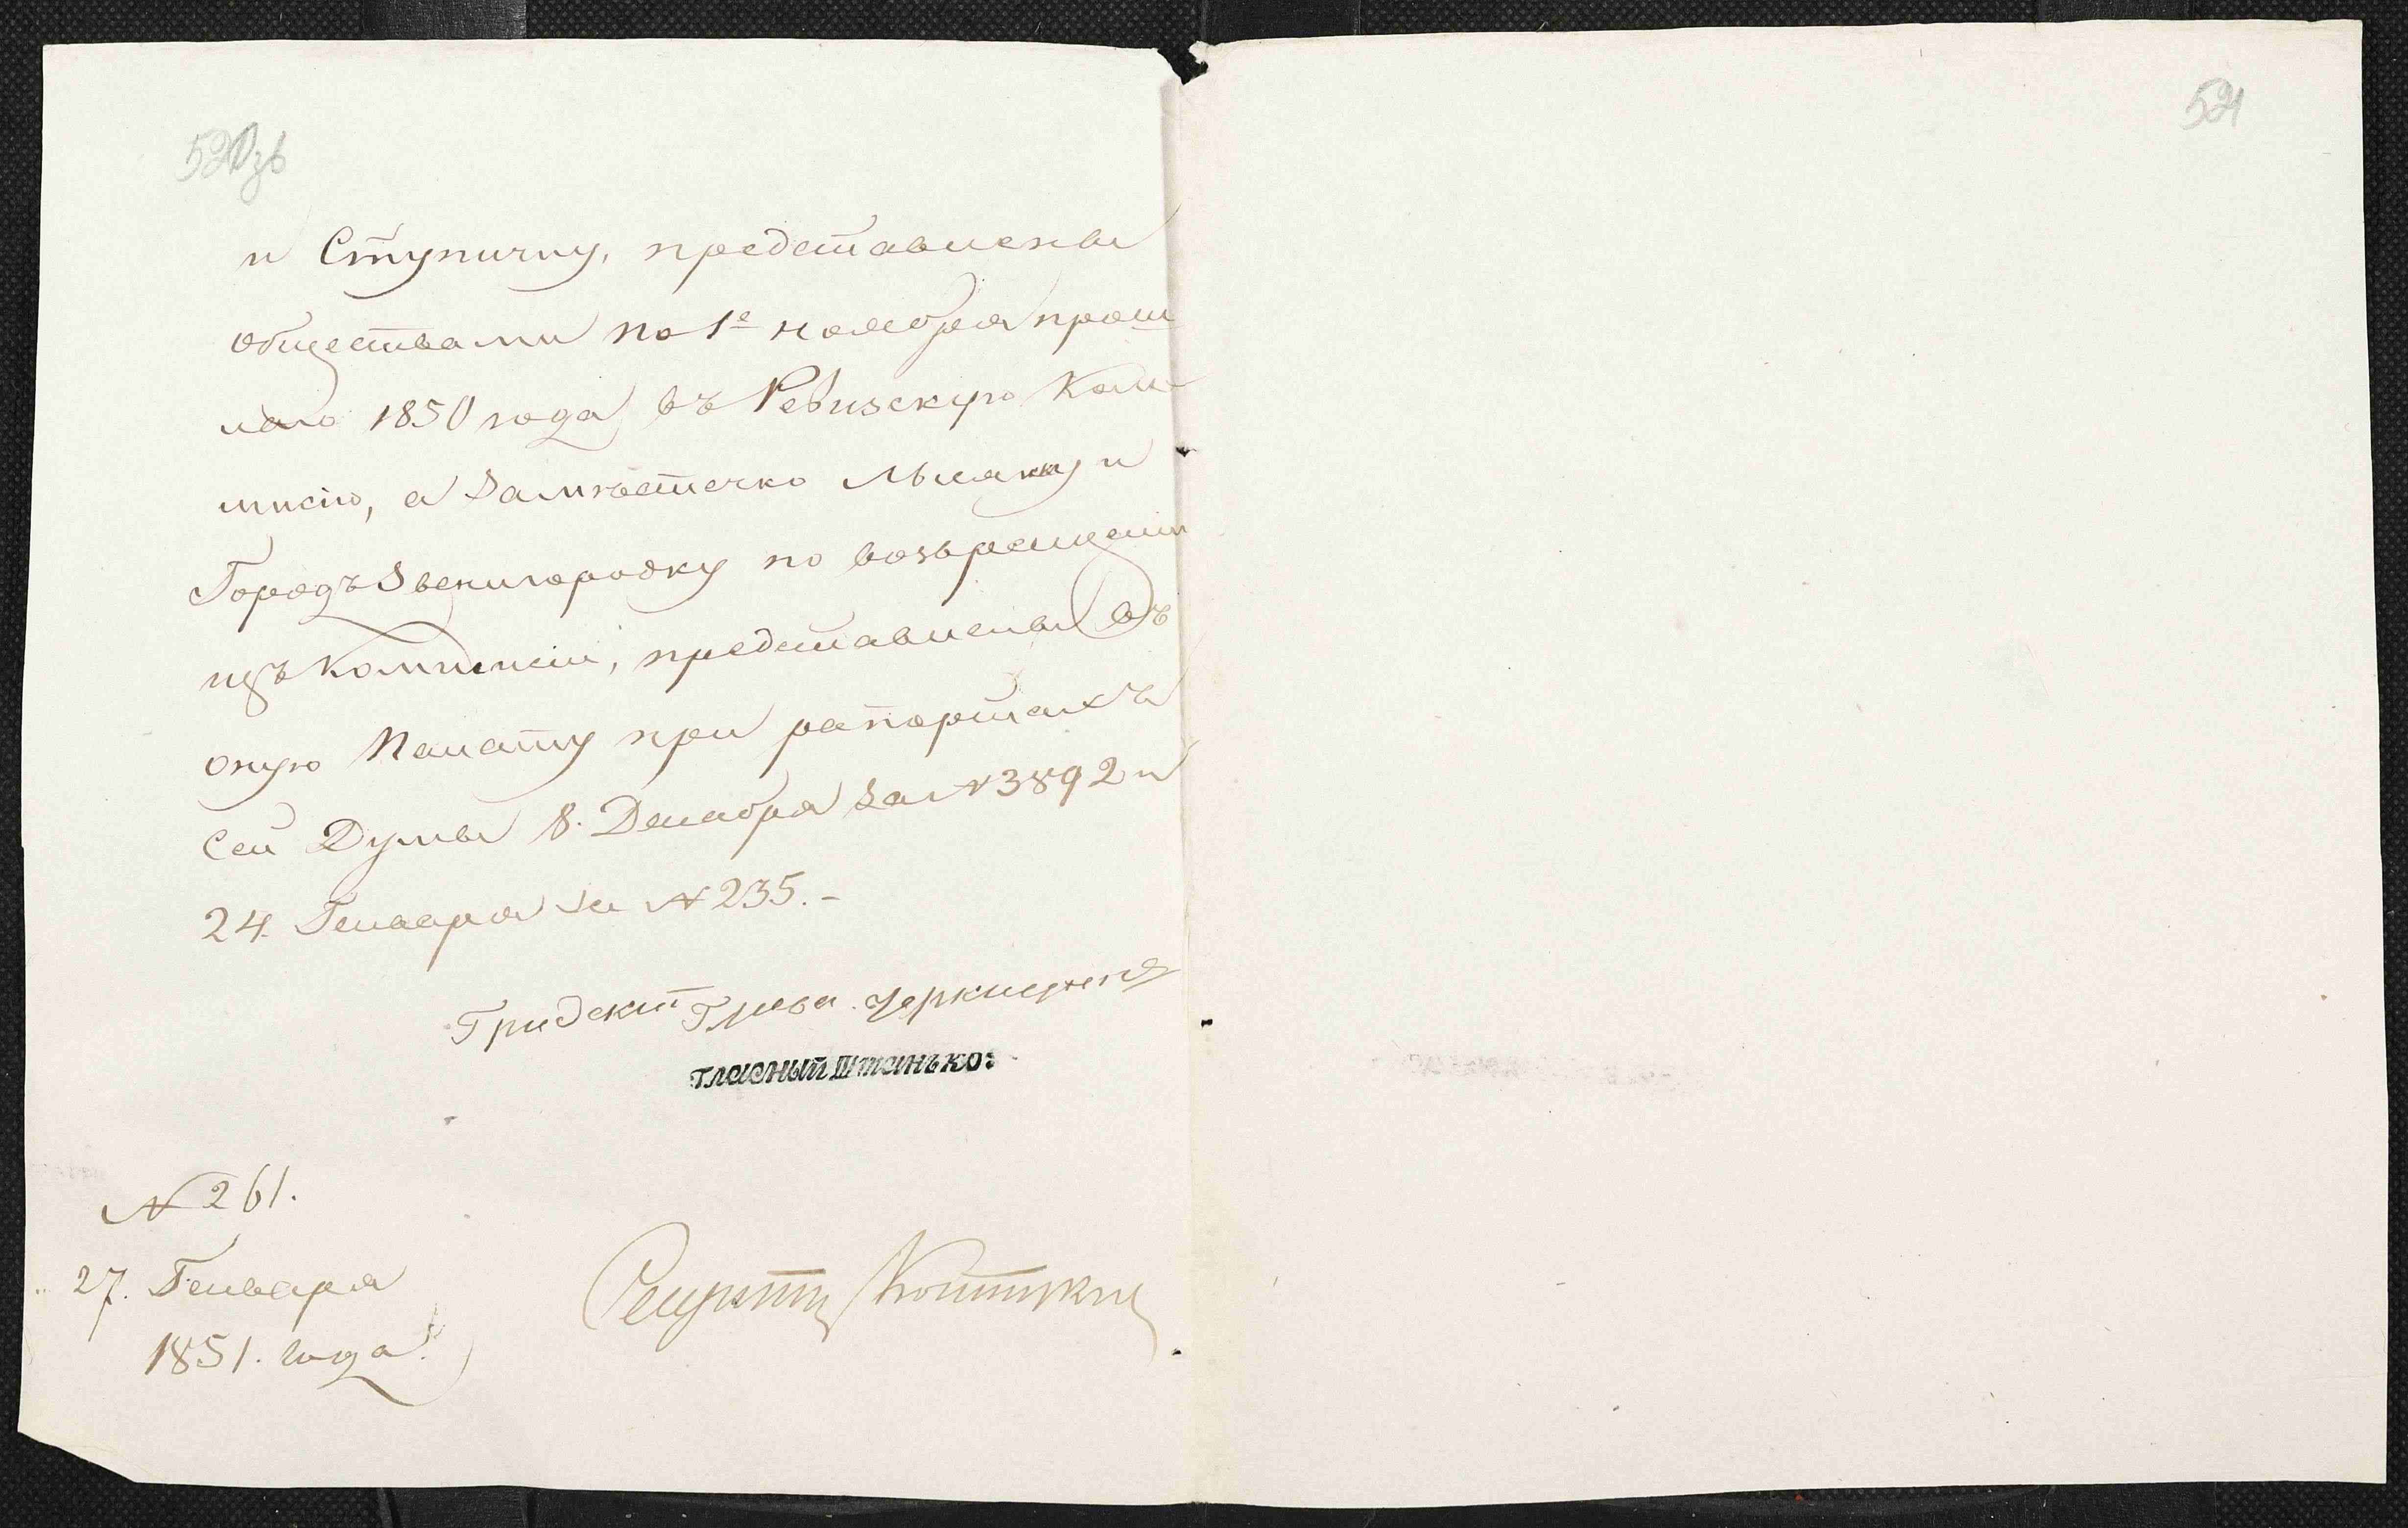 520 зв
521
и Ступичну, представлены
обществами по 1е ноября прош
лаго 1850 года въ Ревизскую Ком
мисію, а За мѣстечко Лысянку и
Городъ Звенигородку по возвращении
изъ Коммисіи, представлены въ
оную Палату при рапортахъ
сей Думы 8. Декабря за № 3892 и
24. Генваря за № 235.-
Градскій Глава
Гласный Штанько:
№ 261.
27. Генваря
1851. года.